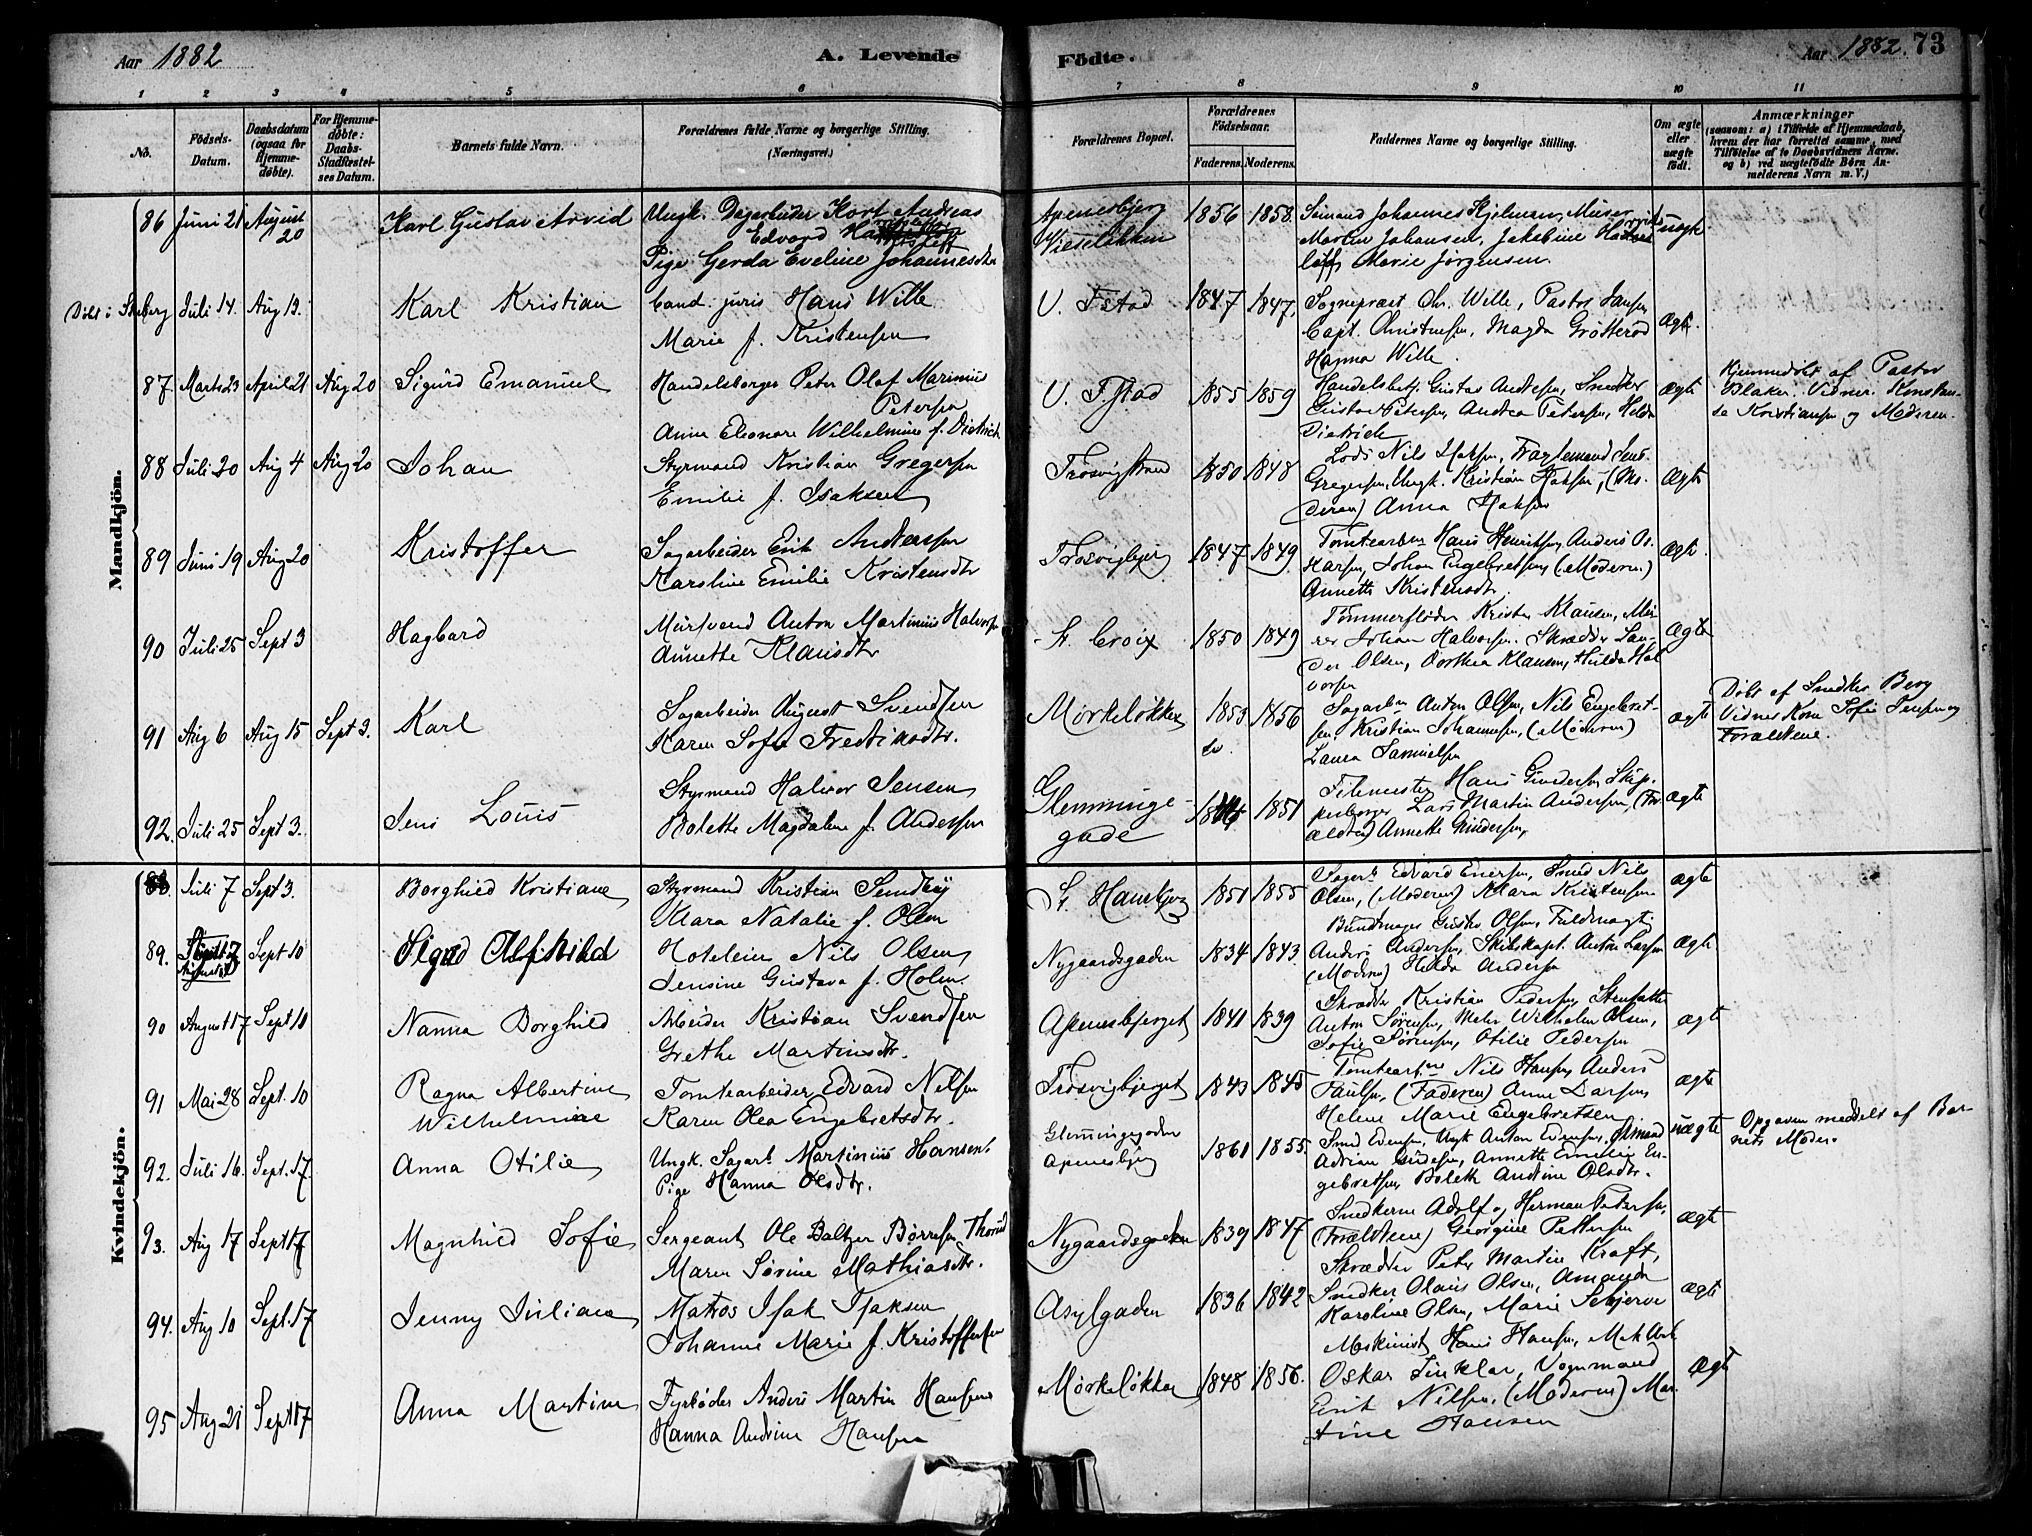 Aar 1882
A. Levende
Födte.
Aar 1882. 73
1 2 3 4 5 6 7 8 9 10 11
No.
Födsels-Datum.
Daabsdatum (ogsaa for Hjemme-døbte).
For Hjemme-døbte: Daabs-Stadfæstel-ses Datum.
Barnets fulde Navn.
Forældrenes fulde Navne og borgerlige Stilling.
(Næringsvei.)
Forældrenes Bopæl.
Forældrenes Födselsaar.
Faderens. Moderens.
Faddernes Navne og borgerlige Stilling.
Om ægte eller uægte født.
Anmærkninger
(saasom: a) i Tilfælde af Hjemmedaab, hvem der har forrettet samme, med Tilföielse af to Daabsvidners Navne, og b) ved uægtefödte Börn An-melderens Navn m. V.)
Mandkjön.
86 Juni 21 August 20 Karl Gustav Arvid Ungk. Dagarbeider Karl Andreas
Edvard
Pige Gerda Eveline Johannesdtr
Apenesbjerg 1856 1858 Sømand Johannes Hjelman, Murer
Martin Johansen, Jakobine
Marie Jørgensen.
uægte
Døbt i Juli 14. Aug 13. Karl Kristian Cand. juris Hans Wille
Marie f. Kristensen
V. Fstad 1847 1847. Sognepræst Chr. Wille, Pastor Jansen,
Capt. Christensen, Magda Grøtterød
Hanna Wille.
Ægte.
87. Marts 23 April 21 Aug 20 Sigurd Emanuel Handelsborger Peter Olaf Marinius
Petersen
Anna Eleonore Wilhelmine f. Dietrich
V. Fstad 1855 1859 Handelsbetj. Gustav Andresen, Snedker
Gustav Petersen, Andrea Petersen, Helda
Dietrich
Ægte
Hjemmedøbt af Pastor
Blaker. Vidner. Konstan-
se Kristiansen og Moderen.
88 Juli 20 Aug 4 Aug 20 Johan Styrmand Kristian Gregersen
Emilie f. Isaksen
Trosvigstrand 1850 1848 Lods Nils Isaksen, Fragtemand Jens
Gregersen, Ungk. Kristian Isaksen, (Mo-
deren) Anna Isaksen
Ægte
89 Juni 19 Aug 20 Kristoffer Sagarbeider Erik Andersen
Karoline Emilie Kristensdtr
Trosvigbjerg 1847 1849. Tomtearben Hans Henriksen, Anders Os.
Hansen, Johan Engebretsen, (Moderen)
Annette Kristensdtr.
Ægte.
90 Juli 25 Sept 3 Hagbard Mursvend Anton Martinius Halvorsen
Annette Klausdtr
St. Croix 1850 1849 Tømmerfløder Krister Klausen, Mu-
rer Johan Halvorsen. Skrædder Lau-
der Olsen, Dorthea Klausen, Hulda Hal
vorsen
Ægte
91 Aug 6 Aug 15 Sept 3. Karl Sagarbeider August Svendsen
Karen Sofie Fredriksdtr.
Mørkeløkken 1853 1856 Sagarben Anton Olsen, Nils Engebret-
sen, Kristian Johannesen, (Moderen)
Laura Samuelsen
Ægte
Døbt af Snedker Berg
Vidner Kone Sofie Jensen og
Forældrene.
92. Juli 25 Sept 3. Jens Louis Styrmand Halvor Jensen
Bolette Magdalene f. Andersen
Glemminge-
gade
1851 Hans Gundersen, Skip-
perborger Lars Martin Andersen, (For
ældre) Annette Gundersen,
ægte
Kvindekjön.
88. Juli 7 Sept 3. Borghild Kristiane Styrmand Kristian Sundbøy
Mara Natalie f. Olsen
St. Hanskjær 1851 1855 Sagarb. Edvard Enersen, Smed Nils
Olsen, (Moderen) Klara Kristensen
Ægte
89. August Sept 10 Signe Alfhild Hoteleier Nils Olsen
Jensine Gustava f. Holm.
Nygaardsgaden 1834 1843. Bundtmager Gustav Olsen, Fuldmægti
Anders Andersen, Skibskapt. Anton Larsen
(Moderen) Helda Andersen
Ægte
90 August 17 Sept 10 Nanna Borghild Arbeider Kristian Svendsen
Grethe Martinsdtr.
Apenesbjerget 1841 1839 Skrædder Kristian Pedersen, Stensætter
Anton Sørensen, Maler Wilhelm Olsen,
Sofie Sørensen, Otilie Pedersen
Ægte
91 Mai 28 Sept. 10 Ragna Albertine
Wilhelmine
Tomtearbeider Edvard Nilsen
Karen Olea Engebretsdtr.
Trosvigbjerget 1843 1845 Tomtearben Nils Hansen, Anders
Paulsen, (Faderen) Anne Larsen,
Helene Marie Engebretsen
Ægte
92. Juli 16. Sept. 17. Anna Otilie Ungk. Sagarb. Martinius Hansen.
Pige Hanna Olsdtr.
Glemmingegaden
Apenesbjerg
1861 1855. Smed Edvardsen, Ungk Anton Edvardsen,
Adrian Gudesen, Annette Emilie En-
gebretsen, Bolette Andrine Olsdtr.
uægte
Opgaven meddelt af Bar-
nets Moder.
93. Aug 17 Sept 17 Magnhild Sofie Sergeant Ole Baltzer Børresen Thorud
Maren Sørine Mathiasdtr.
Nygaardsgaden 1839 1847 Snedkerne Adolf og Herman Petersen,
(Forældrene) Georgine Pettersen
Ægte
94. Aug 10 Sept. 17 Jenny Juliane Matros Isak Isaksen
Johanne Marie f. Kristoffersen
Asylgaden 1836 1842 Skrædder Peter Martin Kraft,
Snedker Olaus Olsen, Amanda
Karoline Olsen, Marie
Ægte
95 Aug 21 Sept 17 Anna Martine Fyrbøder Anders Martin Hansen
Hanna Andrine Hansen
Mørkeløkken 1848 1856. Maskinist Hans Hansen, Mek Arb
Oskar Sinklar, Vognmand
Erik Nilsen, (Moderen) Mar
tine Hansen
Ægte